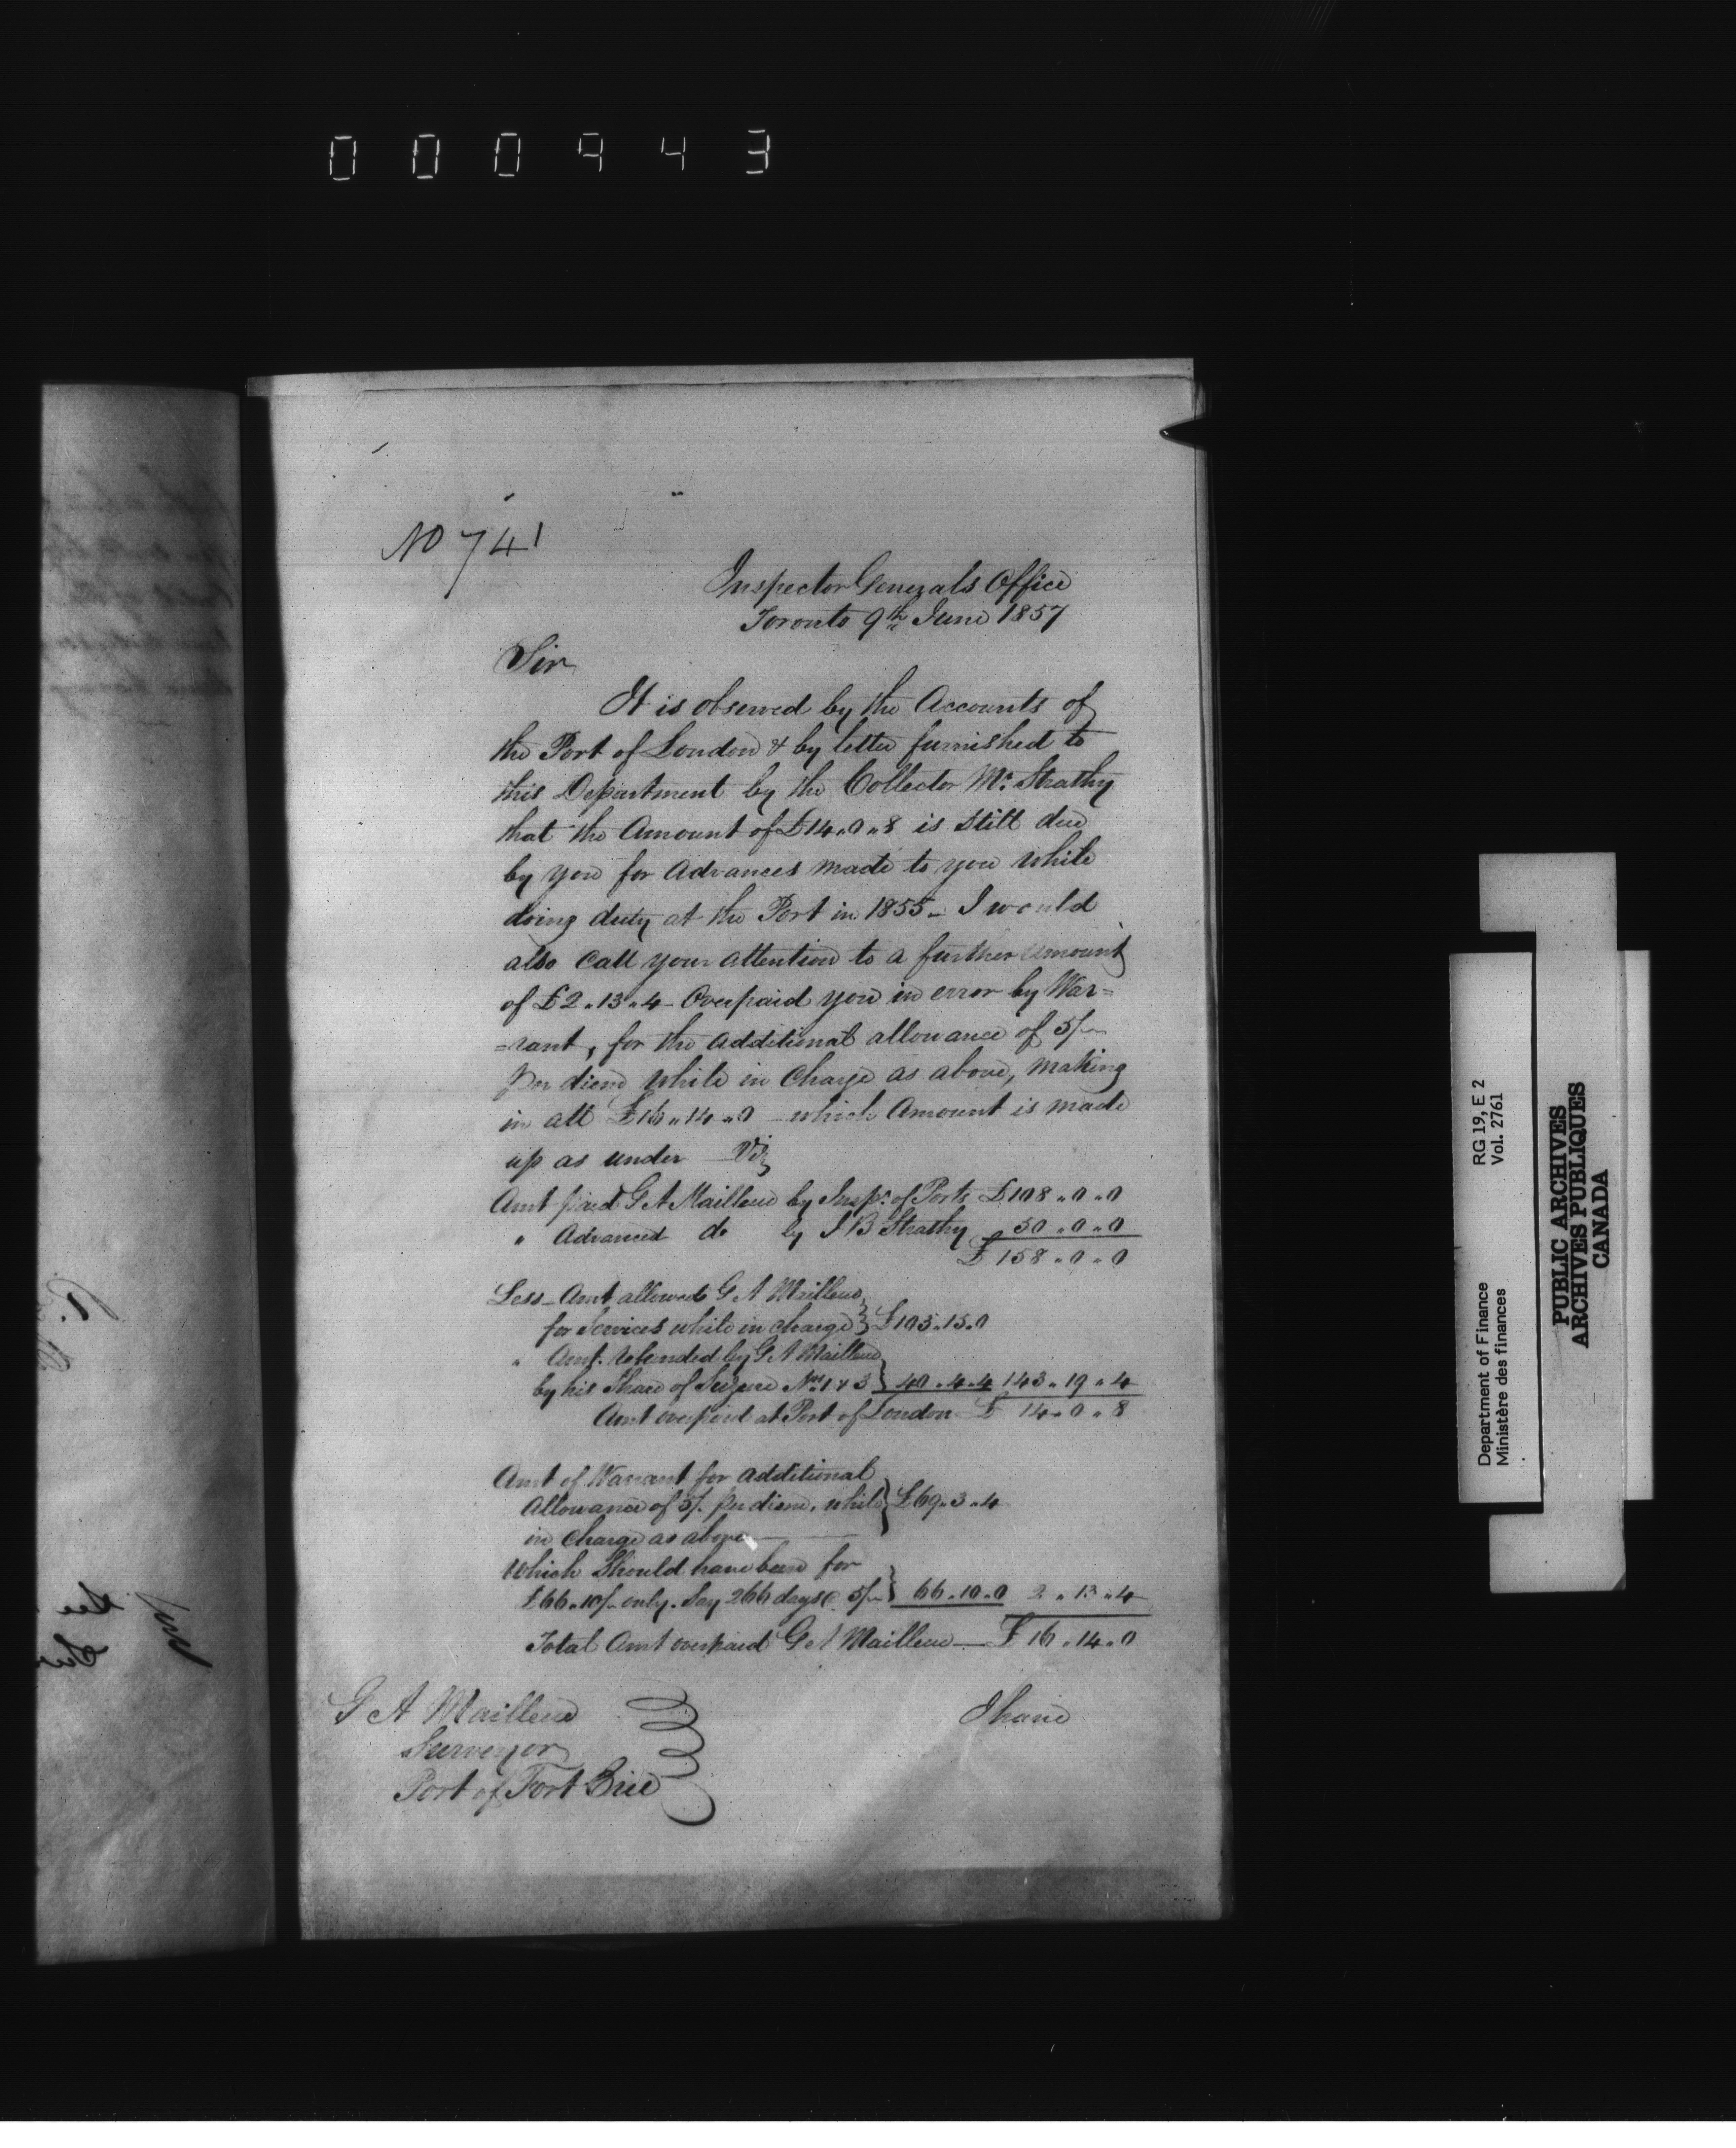 000943
No 741
Inspector Generals Office
Toronto 9th June 1857
Sir
It is observed by the Accounts of
the Port of London & by letter furnished to
this Department by the Collector Mr. Strathy
that the Amount of £14..0..8 is still due
by you for Advances made to you while
doing duty at the Port in 1855 - I would
also Call your attention to a further amount
of £2..13..4 - Overpaid you in error by War=
=rant, for the Additional allowance of 5/-
per diem while in Charge as above, making
in all £16..14..0 - which Amount is made
up as under Viz
Amt paid G A Mailleue by Inspr. of Ports £108..0..0
" Advanced do by J B Strathy 50..0..0
£158..0..0
Less - Amt allowed G A Mailleue
for Services while in charge } £103..15..0
" Amt. refunded by G A Mailleue
by his Share of Seizure Nos 1 & 3 } 40..4..4 143..19..4
Amt overpaid at Port of London £ 14..0..8
Amt of Warrant for additional
Allowance of 5/- per diem, while } £69..3..4
in Charge as above
Which Should have been for
£66..10/- only. Say 266 days @ 5/- } 66..10..0 2..13..4
Total Amt overpaid G A Mailleue — £16..14..0
G A Mailleue
Surveyor
Port of Fort Erie
I have
Department of Finance RG 19, E 2
Ministère des finances Vol. 2761
PUBLIC ARCHIVES
ARCHIVES PUBLIQUES
CANADA